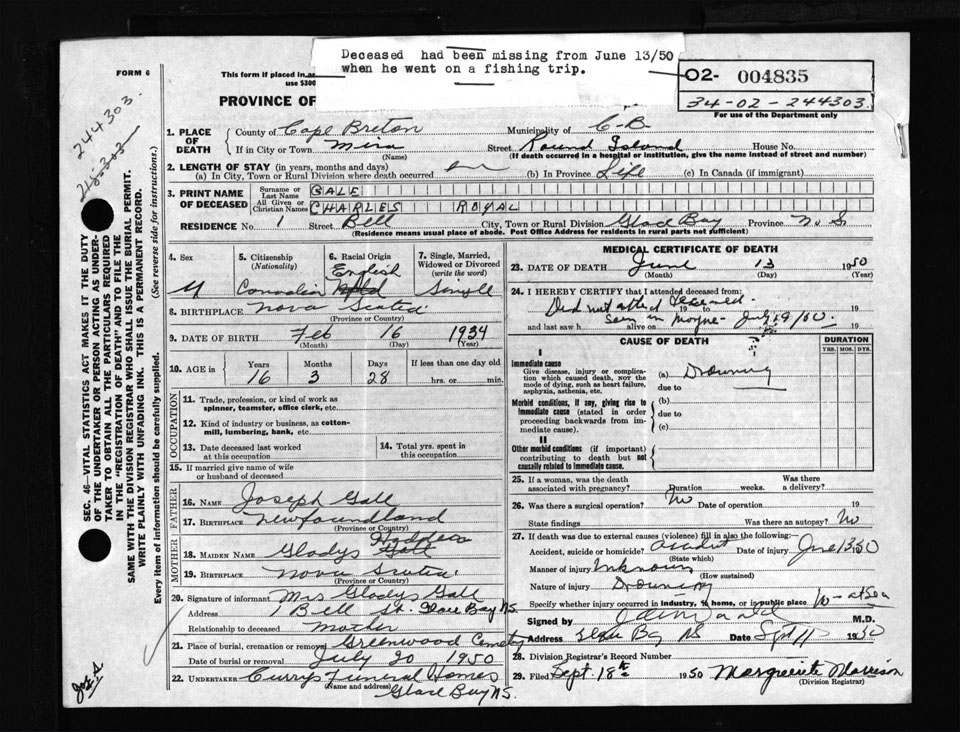 Deceased had been missing from June 13/50
when he went on a fishing trip.
FORM 6
This form if placed in an
use $300
PROVINCE OF
O2- 004835
34-02-244303.
For use of the Department only
244303.
SEC. 46—VITAL STATISTICS ACT MAKES IT THE DUTY
OF THE UNDERTAKER OR PERSON ACTING AS UNDER-
TAKER TO OBTAIN ALL THE PARTICULARS REQUIRED
IN THE "REGISTRATION OF DEATH" AND TO FILE THE
SAME WITH THE DIVISION REGISTRAR WHO SHALL ISSUE THE BURIAL PERMIT.
WRITE PLAINLY WITH UNFADING INK. THIS IS A PERMANENT RECORD.
Every item of information should be carefully supplied. (See reverse side for instructions.)
1. PLACE OF DEATH County of Cape Breton Municipality of C-B
If in City or Town Mira (Name) Street Round Island House No.
(If death occurred in a hospital or institution, give the name instead of street and number)
2. LENGTH OF STAY (in years, months and days)
(a) In City, Town or Rural Division where death occurred (b) In Province Life (c) In Canada (if immigrant)
3. PRINT NAME OF DECEASED Surname or Last Name GALE
All Given or Christian Names CHARLES ROYAL
RESIDENCE No. 1 Street Bell City, Town or Rural Division Glace Bay Province N.S.
(Residence means usual place of abode. Post Office Address for residents in rural parts not sufficient)
4. Sex M
5. Citizenship (Nationality) Canadian
6. Racial Origin English
7. Single, Married, Widowed or Divorced (write the word) Single
8. BIRTHPLACE Nova Scotia (Province or Country)
9. DATE OF BIRTH Feb (Month) 16 (Day) 1934 (Year)
10. AGE in Years 16 Months 3 Days 28 If less than one day old hrs. or min.
OCCUPATION
11. Trade, profession, or kind of work as spinner, teamster, office clerk, etc.
12. Kind of industry or business, as cotton-mill, lumbering, bank, etc.
13. Date deceased last worked at this occupation
14. Total yrs. spent in this occupation
15. If married give name of wife or husband of deceased
FATHER
16. NAME Joseph Gale
17. BIRTHPLACE Newfoundland (Province or Country)
MOTHER
18. MAIDEN NAME Gladys Gale
19. BIRTHPLACE Nova Scotia (Province or Country)
20. Signature of informant Mrs Gladys Gale
Address 1 Bell St. Glace Bay NS
Relationship to deceased Mother
21. Place of burial, cremation or removal Greenwood Cemetery
Date of burial or removal July 20 1950
22. UNDERTAKER Currys Funeral Homes
(Name and address) Glace Bay N.S.
MEDICAL CERTIFICATE OF DEATH
23. DATE OF DEATH June (Month) 13 (Day) 1950 (Year)
24. I HEREBY CERTIFY that I attended deceased from:
Did not attend deceased. 19 to 19
and last saw h alive on 19
Seen in morgue - July 19/50.
CAUSE OF DEATH
DURATION
YRS. MOS. DYS.
I
Immediate cause
Give disease, injury or complication which caused death, NOT the mode of dying, such as heart failure, asphyxia, asthenia, etc.
(a) Drowning
due to
Morbid conditions, if any, giving rise to immediate cause (stated in order proceeding backwards from immediate cause).
(b)
due to
(c)
II
Other morbid conditions (if important) contributing to death but not causally related to immediate cause.
25. If a woman, was the death associated with pregnancy? Duration weeks. Was there a delivery?
26. Was there a surgical operation? No Date of operation 19
State findings Was there an autopsy? No
27. If death was due to external causes (violence) fill in also the following:
Accident, suicide or homicide? Accident (State which) Date of injury June 13.50
Manner of injury Unknown (How sustained)
Nature of injury Drowning
Specify whether injury occurred in industry, home, or in public place No - at sea
Signed by M.D.
Address Glace Bay NS Date Sept 11 1950
28. Division Registrar's Record Number
29. Filed Sept 18th 1950 Marguerite Morrison
(Division Registrar)